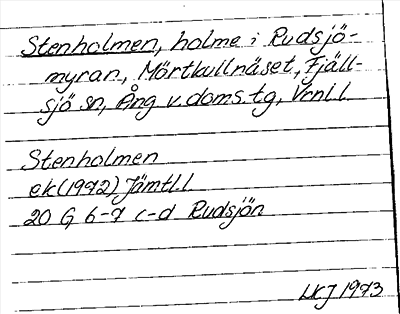 Stenholmen, holme i Rudsjö-
myran, Mörtkullnäset, Fjäll-
sjö sn, Ång v. doms. tg, Vrnl l.
Stenholmen
ek (1972) Jämtl l
20 G 6-7 c-d Rudsjön
LKJ 1973